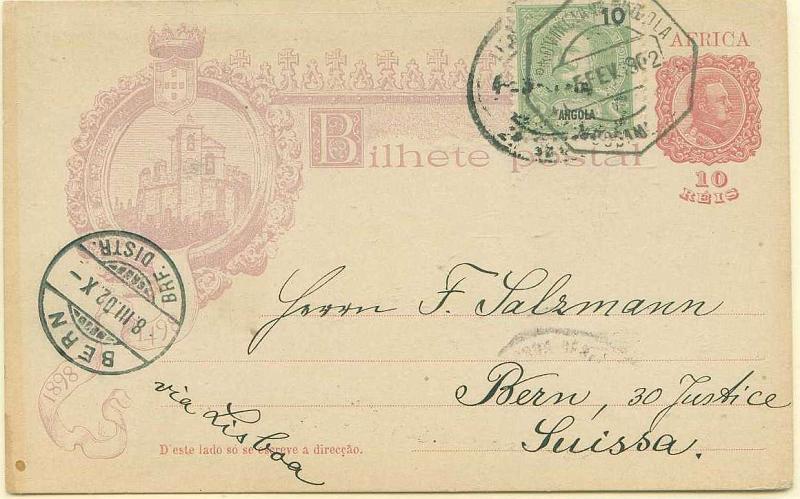 10
AFRICA
5 FEV. 902
ANGOLA
Bilhete postal
10
RÉIS
BERN
8.III.02.X-
BRF. DISTR.
Herrn F. Salzmann
Bern, 30 Justice
Suissa.
via Lisboa
1898
D'este lado só se escreve a direcção.